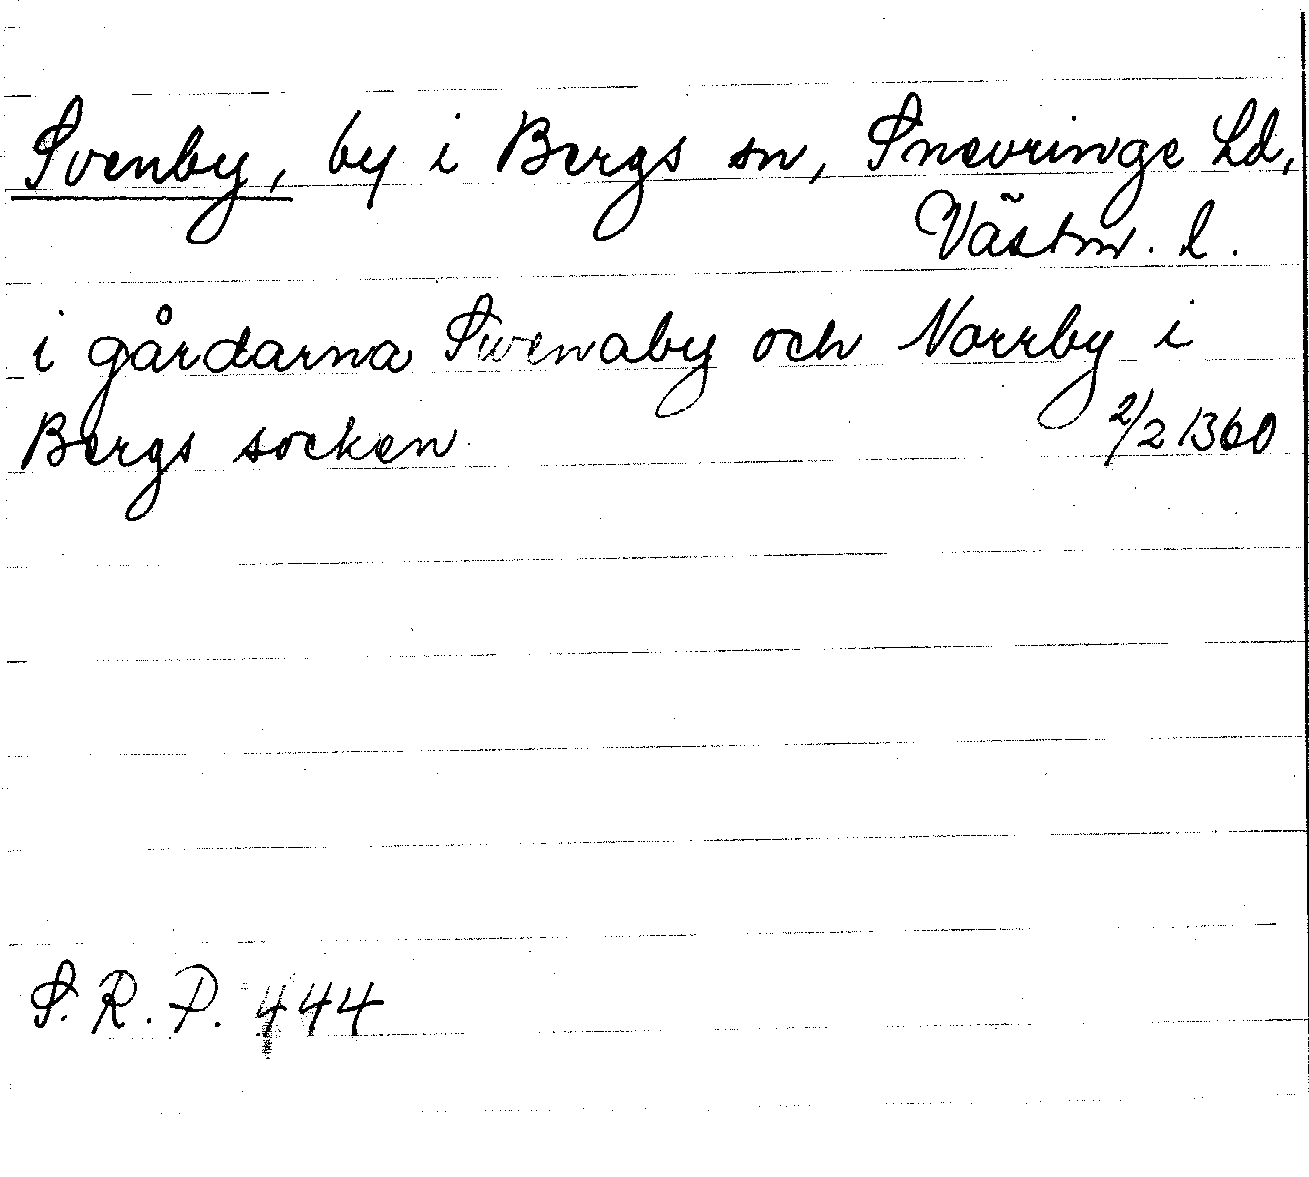 Svenby, by i Bergs sn, Snevringe hd,
Västm. l.
i gårdarna Swenaby och Norrby i
Bergs socken 2/2 1360
S. R. P. 444